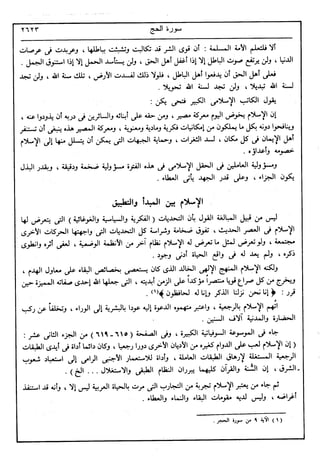 سورة الحج
٢٦٢٣
ألا فلتعلم الأمة المسلمة : أن قوى الشر قد تكالبت وتشبثت بباطلها ، وعربدت فى عرصات
الدنيا ، ولن يرتفع صوت الباطل إلا إذا أغفل أهل الحق ، ولن يستأسد الحمل إلا إذا استنوق الجمل .
فعلى أهل الحق أن يدفعوا أهل الباطل ، فلولا ذلك لفسدت الأرض ، تلك سنة الله ، ولن تجد
لسنة الله تبديلا ، ولن تجد لسنة الله تحويلا .
يقول الكاتب الإسلامى الكبير فتحى يكن :
إن الإسلام يخوض اليوم معركة مصير ، ومن حقه على أبنائه والسائرين فى دربه أن يذودوا عنه ،
وينافحوا دونه بكل ما يملكون من إمكانيات فكرية ومادية ومعنوية ، ومعركة المصير هذه ينبغى أن تستنفر
أهل الإيمان فى كل مكان ، لسد الثغرات ، وحماية الجبهات التى يمكن أن يتسلل منها إلى الإسلام
خصومه وأعداؤه .
ومسؤولية العاملين فى الحقل الإسلامى فى هذه الفترة مسؤولية ضخمة ودقيقة ، وبقدر البذل
يكون الجزاء ، وعلى قدر الجهد يأتى العطاء .
الإسلام بين المبدأ والتطبيق
ليس من قبيل المبالغة القول بأن التحديات ( الفكرية والسياسية والغوغائية ) التى يتعرض لها
الإسلام فى العصر الحديث ، تفوق ضخامة وشراسة كل التحديات التى واجهتها الحركات الأخرى
مجتمعة ، ولو تعرض لمثل ما تعرض له الإسلام نظام آخر من الأنظمة الوضعية ، لعفى أثره وانطوى
ذكره ، ولم يعد له فى واقع الحياة أدنى وجود .
ولكنه الإسلام المنهج الإلهى الخالد الذى كان يستعصى بخصائص البقاء على معاول الهدم ،
ويخرج من كل صراع قويا منتصراً مؤكداً على الزمن أبديته ، التى جعلها الله إحدى صفاته المميزة حين
قرر : ﴿ إنا نحن نزلنا الذكر وإنا له لحافظون ﴾(١) .
اتهم الإسلام بالرجعية ، واعتبر متهموه الدعوة إليه عودا بالبشرية إلى الوراء ، وتخلفاً عن ركب
الحضارة والمدنية آلاف السنين .
جاء فى الموسوعة السوفياتية الكبيرة ، وفى الصفحة (٥٦١٥ - ٦١٩) من الجزء الثانى عشر :
( إن الإسلام لعب على الدوام كغيره من الأديان الأخرى دورا رجعيا ، وكان دائما أداة فى أيدى الطبقات
الرجعية المستغلة لإرهاق الطبقات العاملة ، وأداة للاستعمار الأجنبى الرامى إلى استعباد شعوب
الشرق ، إن السنة والقرآن كليهما يبرران النظام الطبقى والاستغلال ... الخ ) .
ثم جاء من يعتبر الإسلام تجربة من التجارب التى مرت بالحياة العربية ليس إلا ، وأنه قد استنفذ
أغراضه ، وليس لديه مقومات البقاء والنماء والعطاء .
(١) الآية ٩ من سورة الحجر .